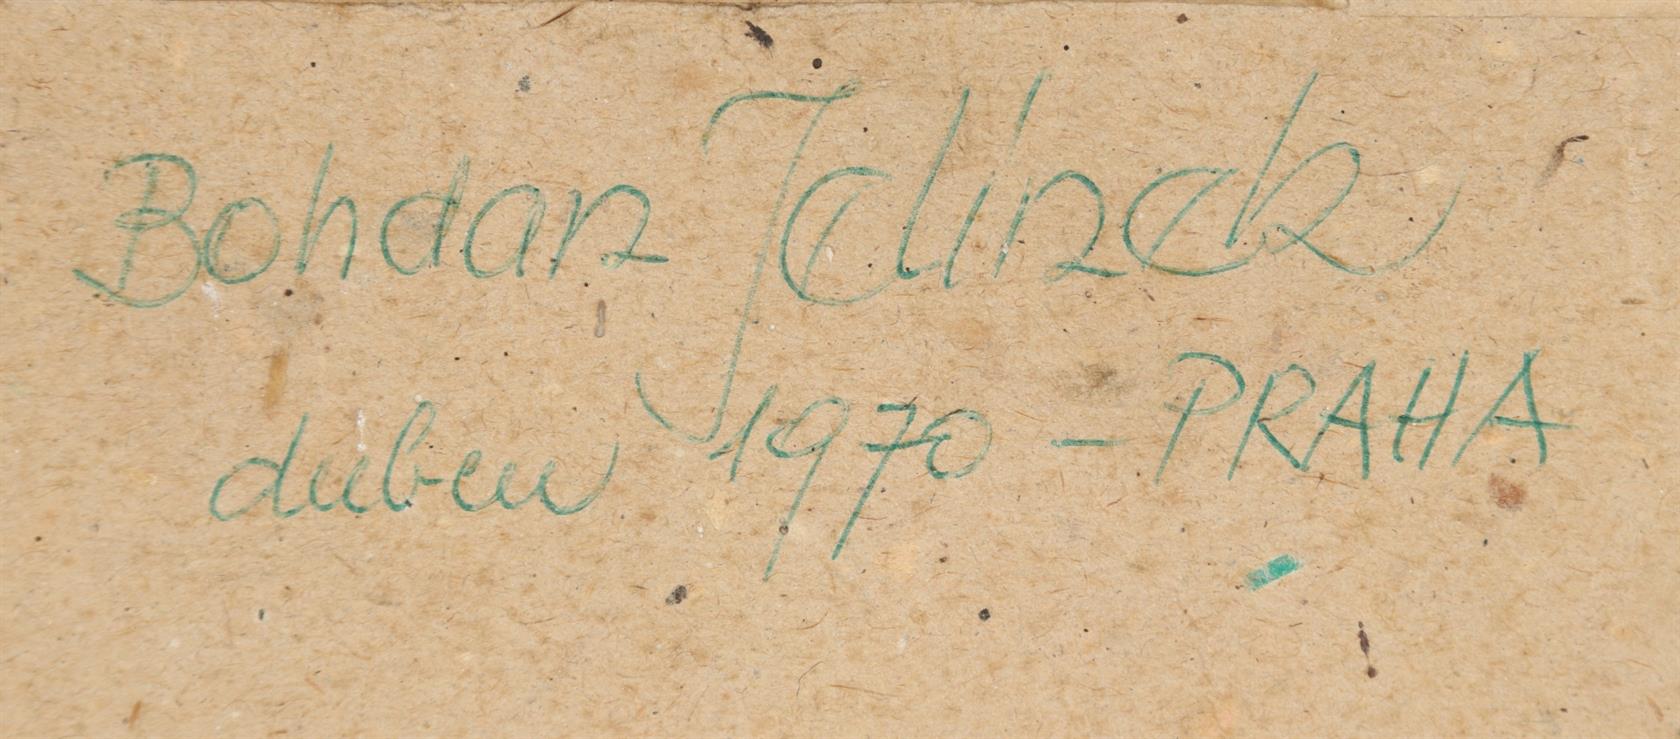 Bohdan Jelínek
duben 1970 - PRAHA